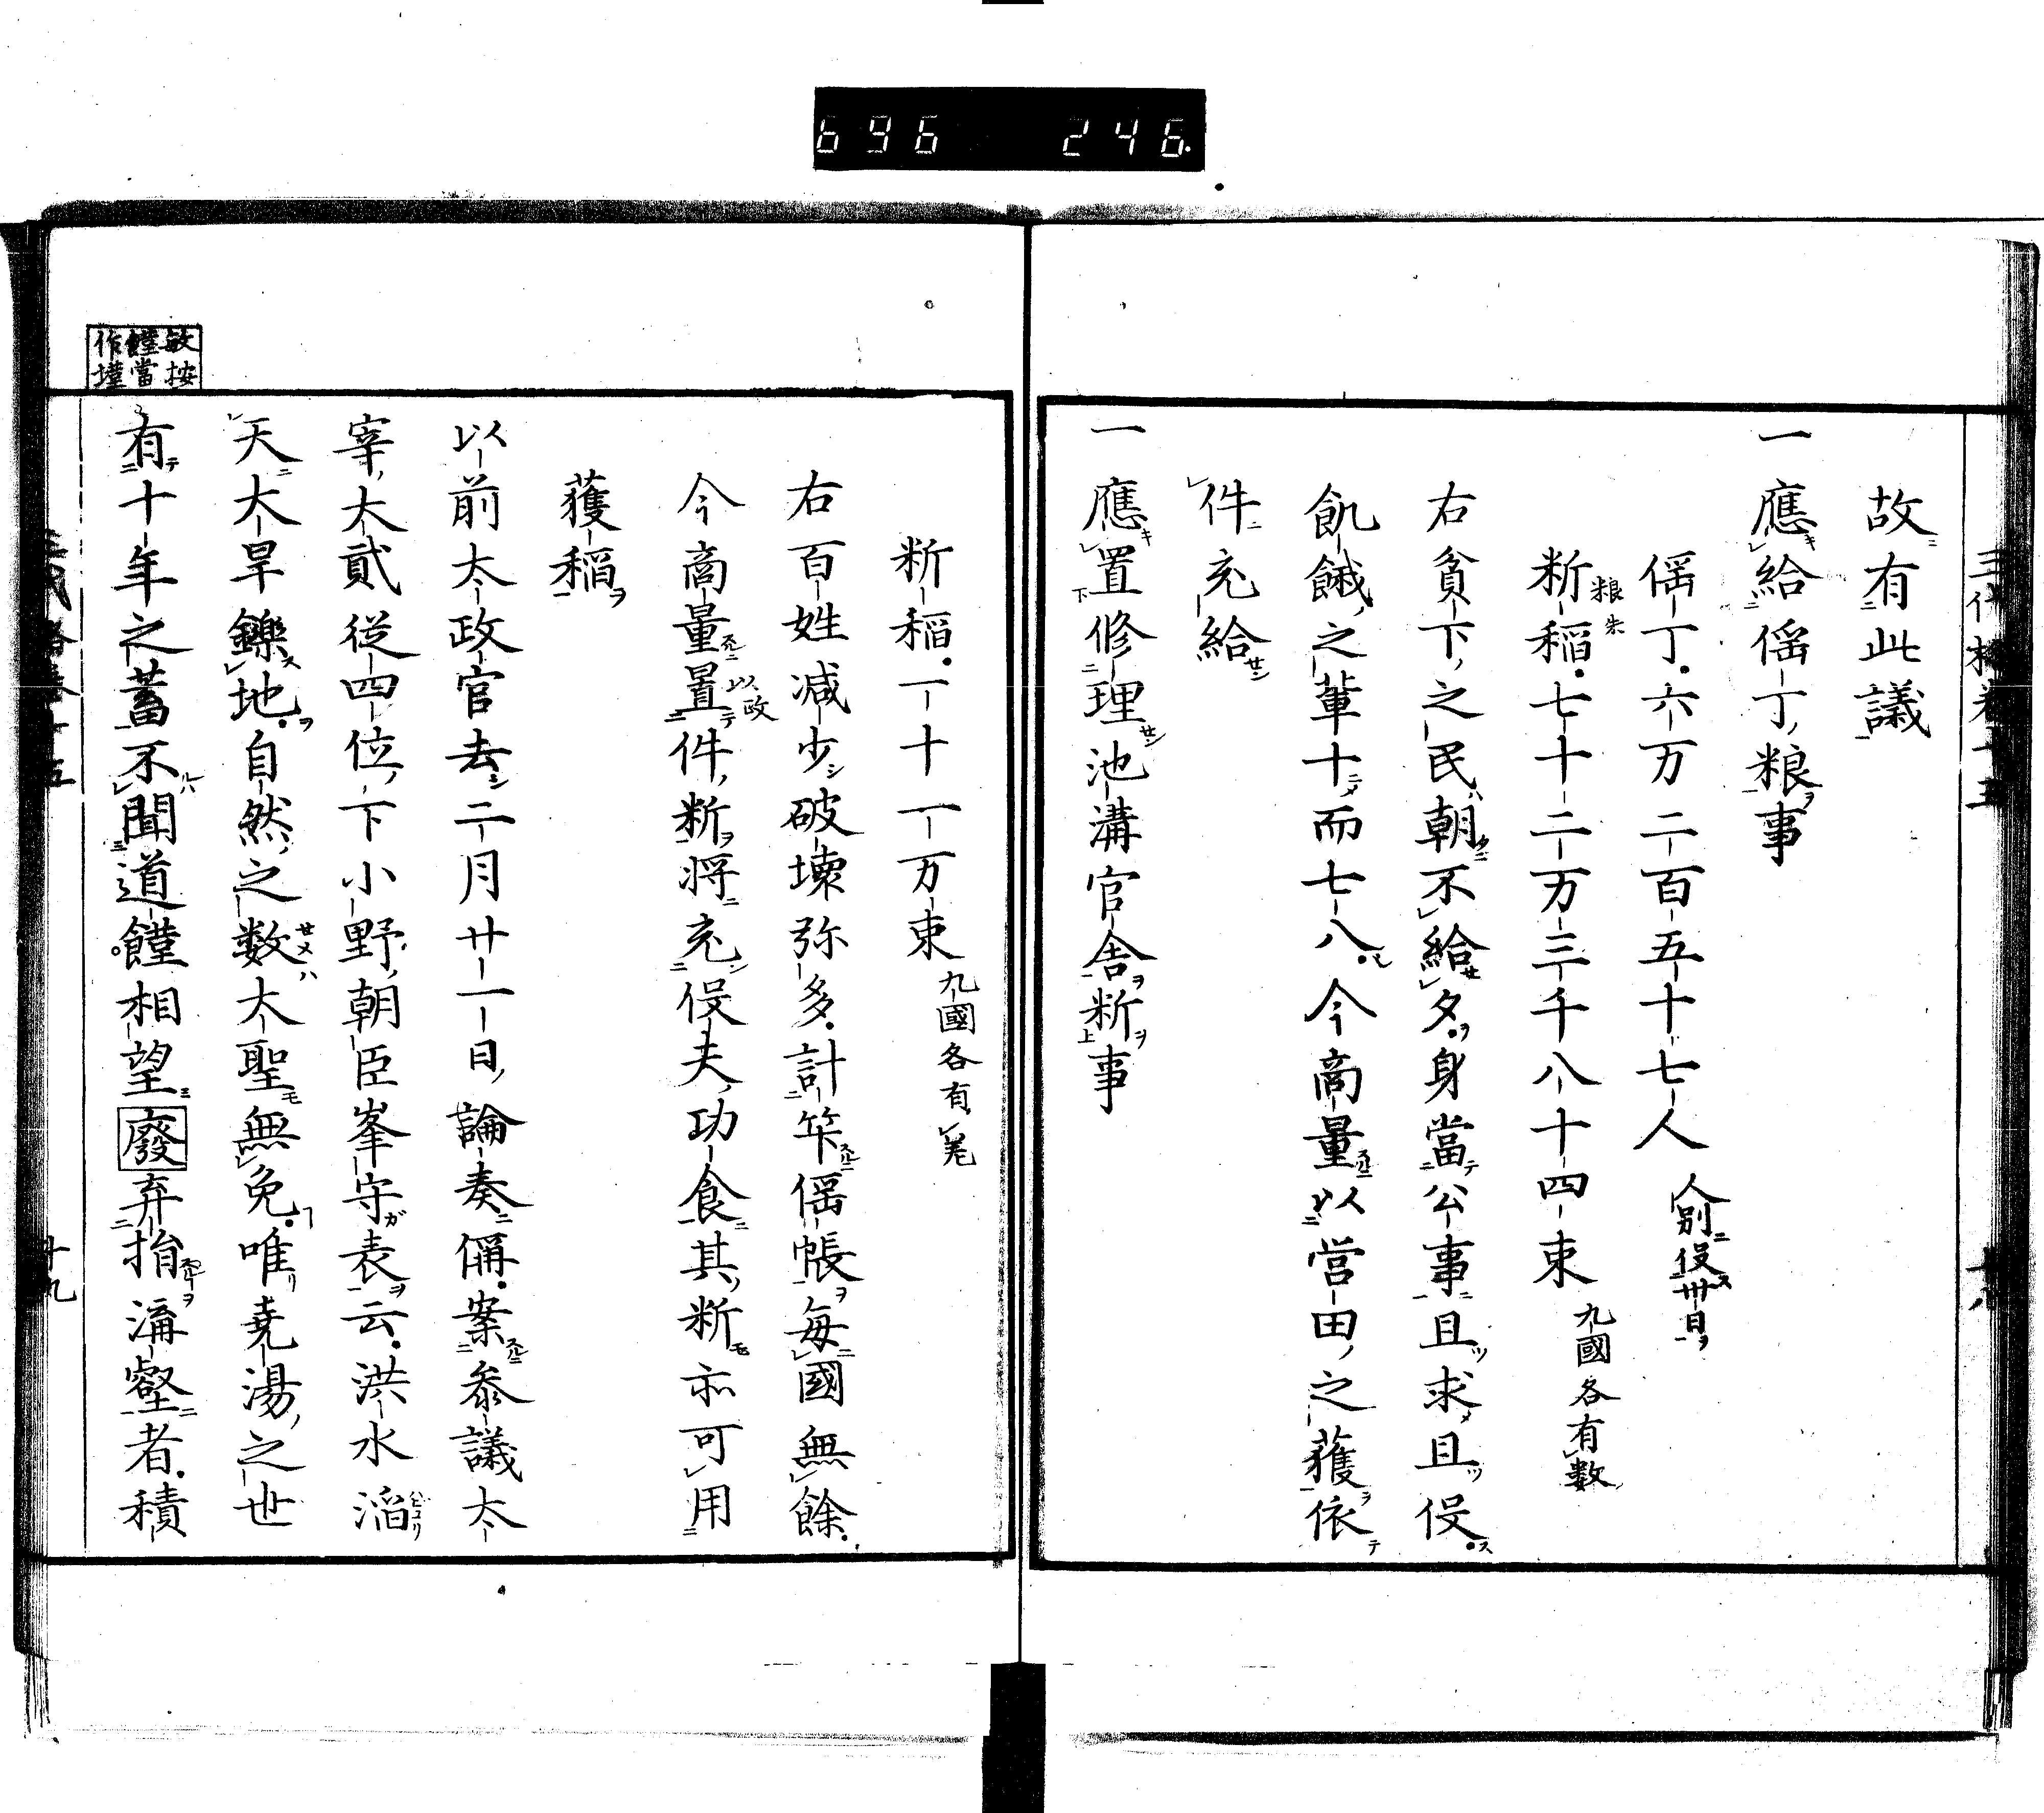 696 246
故有此議
一 應給徭丁粮事
徭丁六万二百五十七人 人別役卅日
粮朱
䉼稲七十二万三千八十四束 九國各有数
右貧下之民朝不給夕身當公事且求且役
飢餓之輩十而七八今商量以営田之獲依
件充給
一 應置修理池溝官舎䉼事
䉼稲一十一万束 九國各有差
右百姓减少破壊弥多計竿徭帳毎國無餘
今商量置件䉼将充役夫功食其䉼亦可用
以政
獲稲
以前太政官去二月廿一日論奏偁案参議太
宰大貳従四位下小野朝臣峯守表云洪水滔
天大旱鑠地自然之数大聖無免唯堯湯之世
有十年之蓄不聞道饉相望廢弃捐溝壑者積
敏按
饉當
作墐